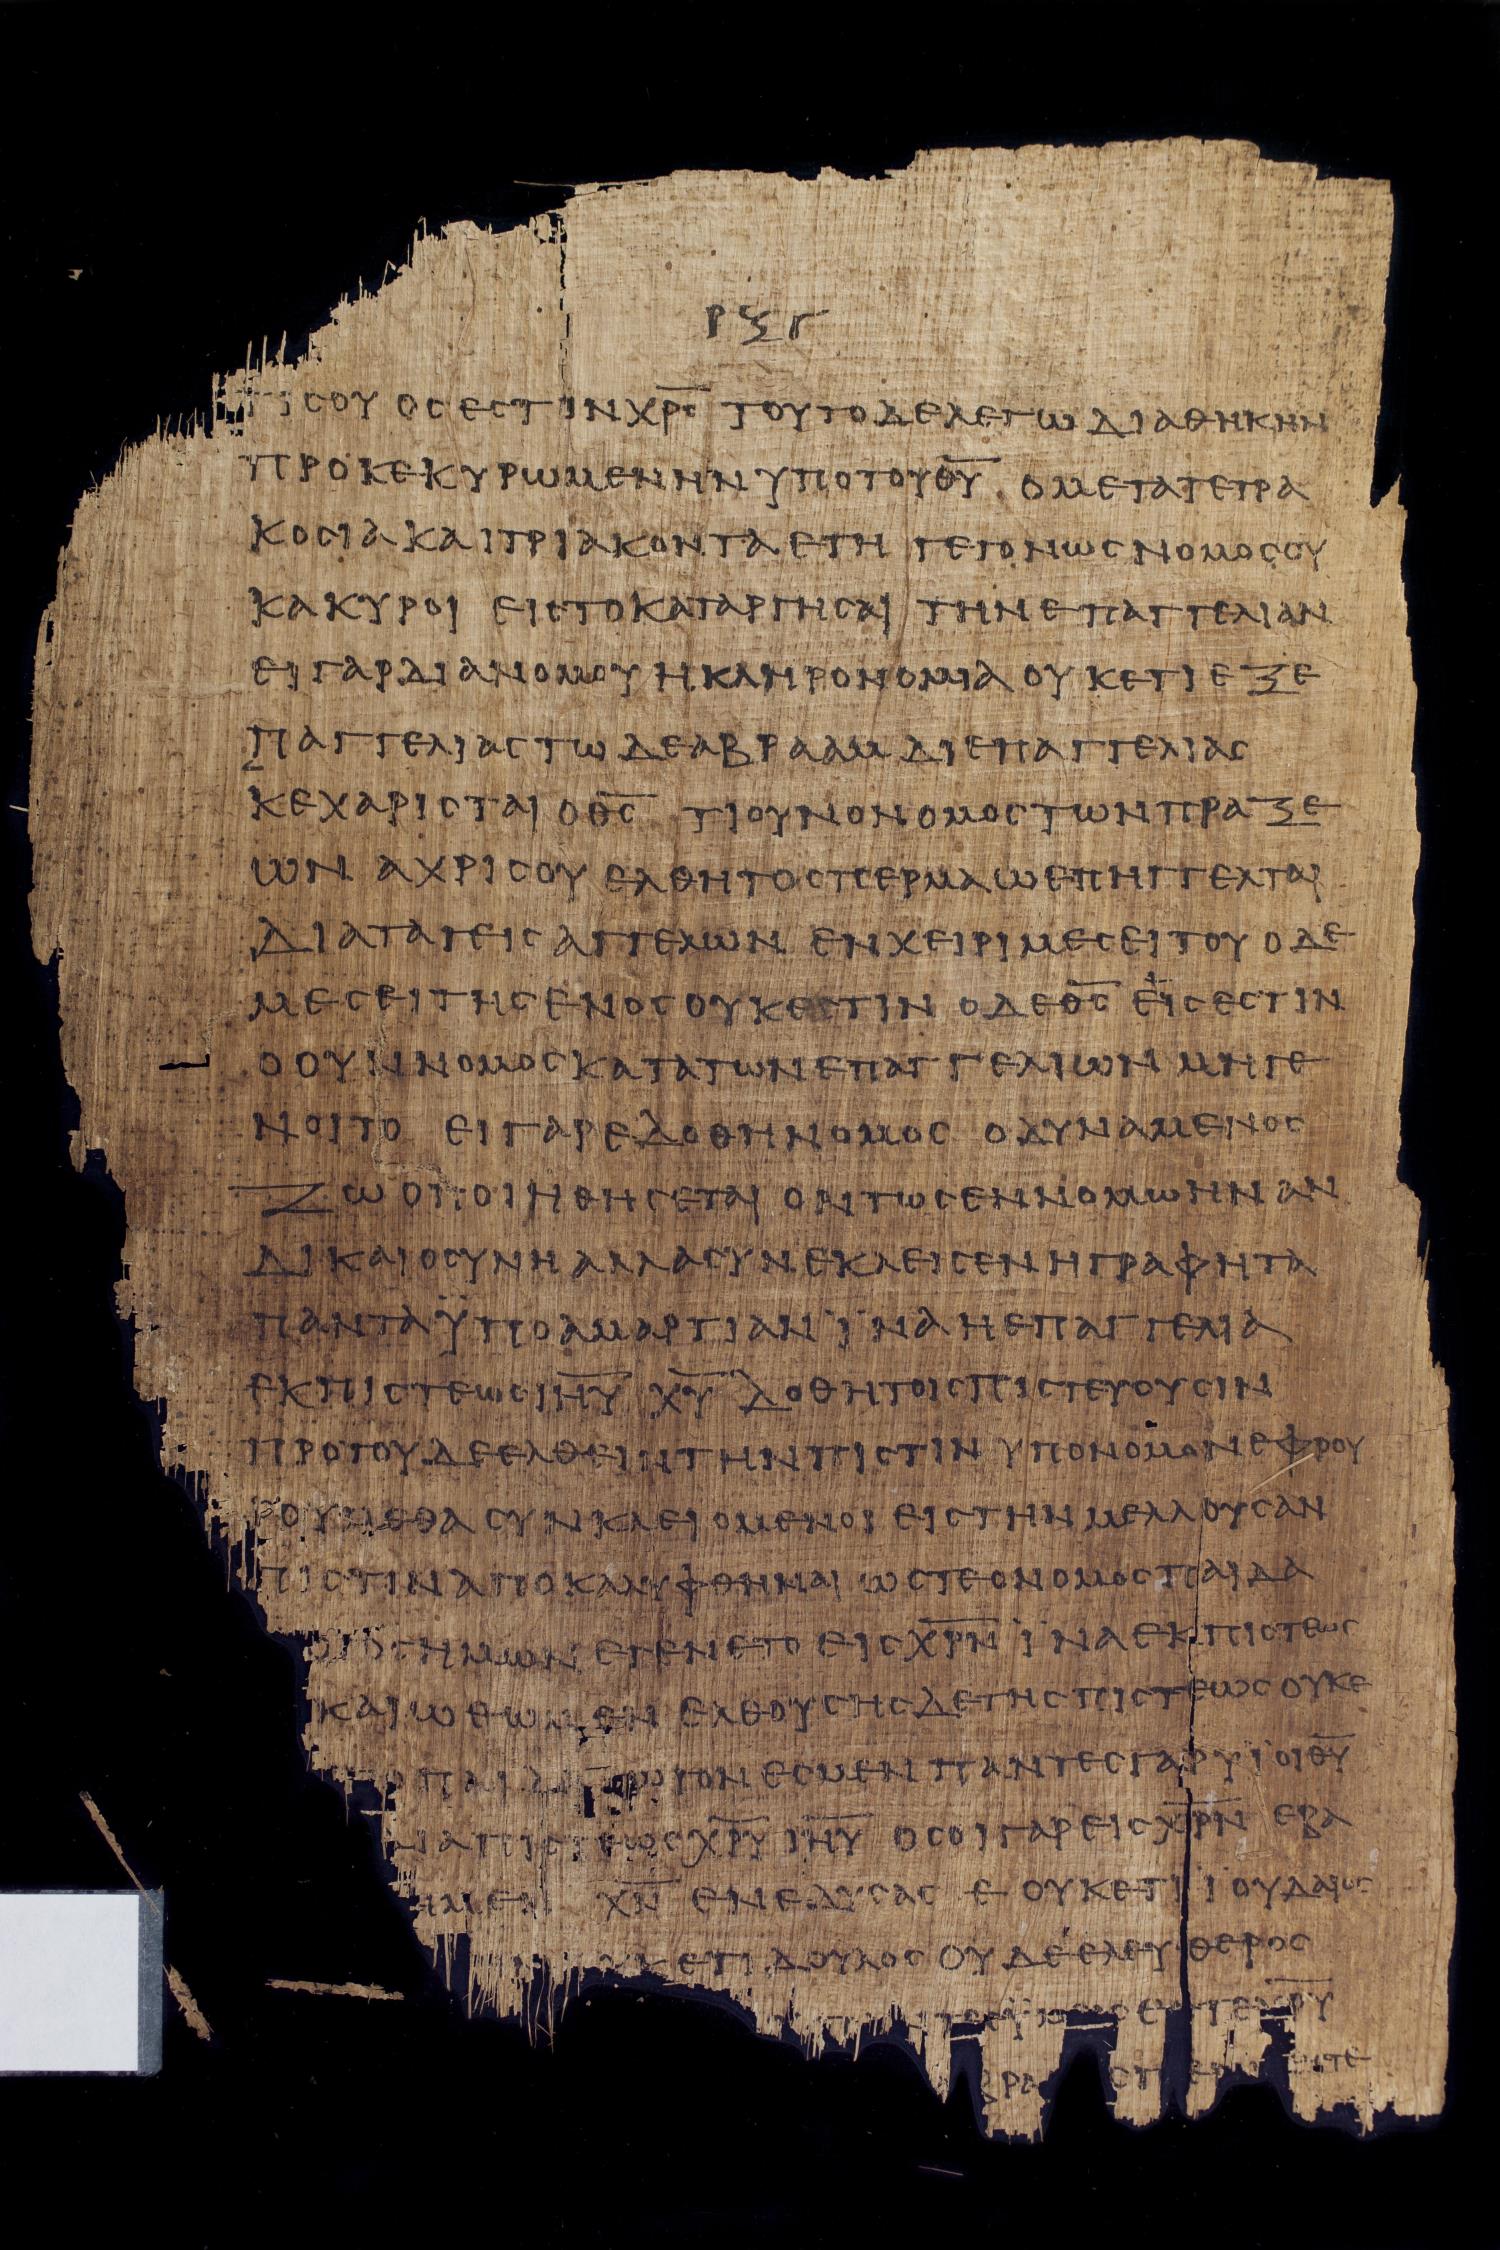 ΡΞΓ
ΤΙ ΣΟΥ ΟΣ ΕΣΤΙΝ ΧΡ̅Σ̅ ΤΟΥΤΟ ΔΕ ΛΕΓΩ ΔΙΑΘΗΚΗΝ
ΠΡΟΚΕΚΥΡΩΜΕΝΗΝ ΥΠΟ ΤΟΥ Θ̅Υ̅ Ο ΜΕΤΑ ΤΕΤΡΑ
ΚΟΣΙΑ ΚΑΙ ΤΡΙΑΚΟΝΤΑ ΕΤΗ ΓΕΓΟΝΩΣ ΝΟΜΟΣ ΟΥ
Κ ΑΚΥΡΟΙ ΕΙΣ ΤΟ ΚΑΤΑΡΓΗΣΑΙ ΤΗΝ ΕΠΑΓΓΕΛΙΑΝ
ΕΙ ΓΑΡ ΔΙΑ ΝΟΜΟΥ Η ΚΛΗΡΟΝΟΜΙΑ ΟΥΚΕΤΙ ΕΞ Ε
ΠΑΓΓΕΛΙΑΣ ΤΩ ΔΕ ΑΒΡΑΑΜ ΔΙ ΕΠΑΓΓΕΛΙΑΣ
ΚΕΧΑΡΙΣΤΑΙ Ο Θ̅Σ̅ ΤΙ ΟΥΝ Ο ΝΟΜΟΣ ΤΩΝ ΠΡΑΞΕ
ΩΝ ΑΧΡΙΣ ΟΥ ΕΛΘΗ ΤΟ ΣΠΕΡΜΑ Ω ΕΠΗΓΓΕΛΤΑΙ
ΔΙΑΤΑΓΕΙΣ ΑΓΓΕΛΩΝ ΕΝ ΧΕΙΡΙ ΜΕΣΕΙΤΟΥ Ο ΔΕ
ΜΕΣΕΙΤΗΣ ΕΝΟΣ ΟΥΚ ΕΣΤΙΝ Ο ΔΕ Θ̅Σ̅ ΕΪΣ ΕΣΤΙΝ
Ο ΟΥΝ ΝΟΜΟΣ ΚΑΤΑ ΤΩΝ ΕΠΑΓΓΕΛΙΩΝ ΜΗ ΓΕ
ΝΟΙΤΟ ΕΙ ΓΑΡ ΕΔΟΘΗ ΝΟΜΟΣ Ο ΔΥΝΑΜΕΝΟΣ
ΖΩΟΠΟΙΗΘΗΣΕΤΑΙ ΟΝΤΩΣ ΕΝ ΝΟΜΩ ΗΝ ΑΝ
ΔΙΚΑΙΟΣΥΝΗ ΑΛΛΑ ΣΥΝΕΚΛΕΙΣΕΝ Η ΓΡΑΦΗ ΤΑ
ΠΑΝΤΑ ΫΠΟ ΑΜΑΡΤΙΑΝ ΪΝΑ Η ΕΠΑΓΓΕΛΙΑ
ΕΚ ΠΙΣΤΕΩΣ Ι̅Η̅Υ̅ Χ̅Υ̅ ΔΟΘΗ ΤΟΙΣ ΠΙΣΤΕΥΟΥΣΙΝ
ΠΡΟ ΤΟΥ ΔΕ ΕΛΘΕΙΝ ΤΗΝ ΠΙΣΤΙΝ ΥΠΟ ΝΟΜΟΝ ΕΦΡΟΥ
ΡΟΥΜΕΘΑ ΣΥΝΚΛΕΙΟΜΕΝΟΙ ΕΙΣ ΤΗΝ ΜΕΛΛΟΥΣΑΝ
ΠΙΣΤΙΝ ΑΠΟΚΑΛΥΦΘΗΝΑΙ ΩΣΤΕ Ο ΝΟΜΟΣ ΠΑΙΔΑ
ΗΜΩΝ ΕΓΕΝΕΤΟ ΕΙΣ Χ̅Ρ̅Ν̅ ΪΝΑ ΕΚ ΠΙΣΤΕΩΣ
ΚΑΙΩΘΩΜΕΝ ΕΛΘΟΥΣΗΣ ΔΕ ΤΗΣ ΠΙΣΤΕΩΣ ΟΥΚΕ
ΕΣΜΕΝ ΠΑΝΤΕΣ ΓΑΡ ΥΪΟΙ Θ̅Υ̅
ΔΙΑ ΠΙΣΤΕΩΣ Χ̅Ρ̅Υ̅ Ι̅Η̅Υ̅ ΟΣΟΙ ΓΑΡ ΕΙΣ Χ̅Ρ̅Ν̅ ΕΒΑ
Χ̅Ν̅ ΕΝΕΔΥΣΑΣΘΕ ΟΥΚΕΤΙ ΙΟΥΔΑΙΟΣ
ΟΥΚΕΤΙ ΔΟΥΛΟΣ ΟΥΔΕ ΕΛΕΥΘΕΡΟΣ
Χ̅Ρ̅Υ̅